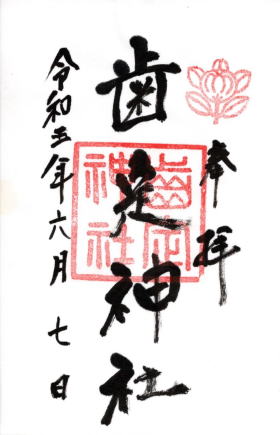 奉拝
歯定神社
歯定神社
令和五年六月七日